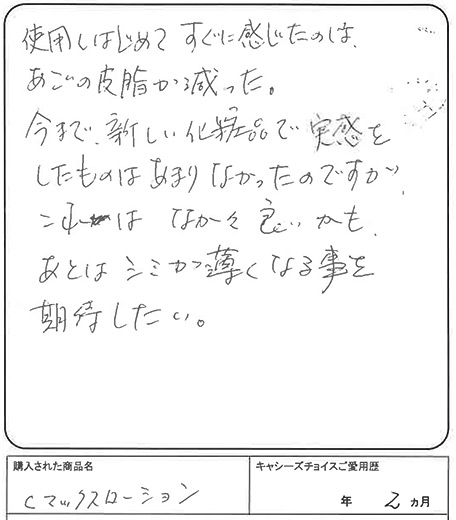 使用しはじめて すぐに感じたのは、
あごの皮脂が減った。
今まで、新しい化粧品で 実感を
したものは あまり なかったのですが、
これは なかなか 良いかも、
あとは シミが薄くなる事を
期待したい。
購入された商品名
Cマックスローション
キャシーズチョイスご愛用歴
年 2 カ月